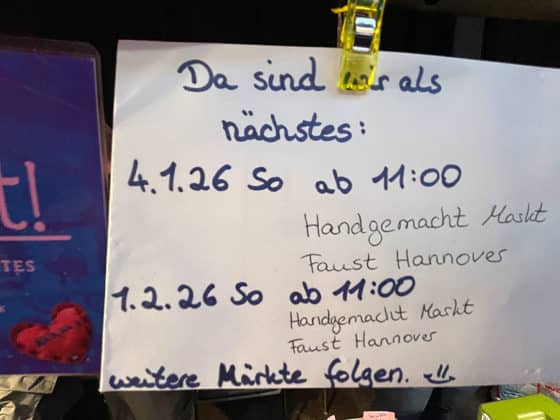 Da sind wir als
nächstes:
4.1.26 So ab 11:00
Handgemacht Markt
Faust Hannover
1.2.26 So ab 11:00
Handgemacht Markt
Faust Hannover
weitere Märkte folgen.
t!
TES